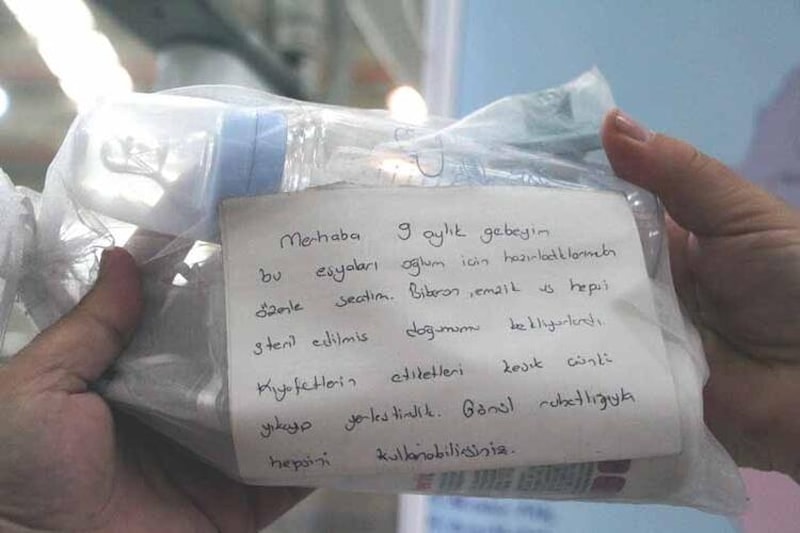 Merhaba 9 aylık gebeyim
bu eşyaları oğlum için hazırladıklarımdan
özenle seçtim. Biberon, emzik vs hepsi
steril edilmiş doğumumu bekliyorlardı.
Kıyafetlerin etiketleri kesik çünkü
yıkayıp yerleştirdik. Gönül rahatlığıyla
hepsini kullanabilirsiniz.